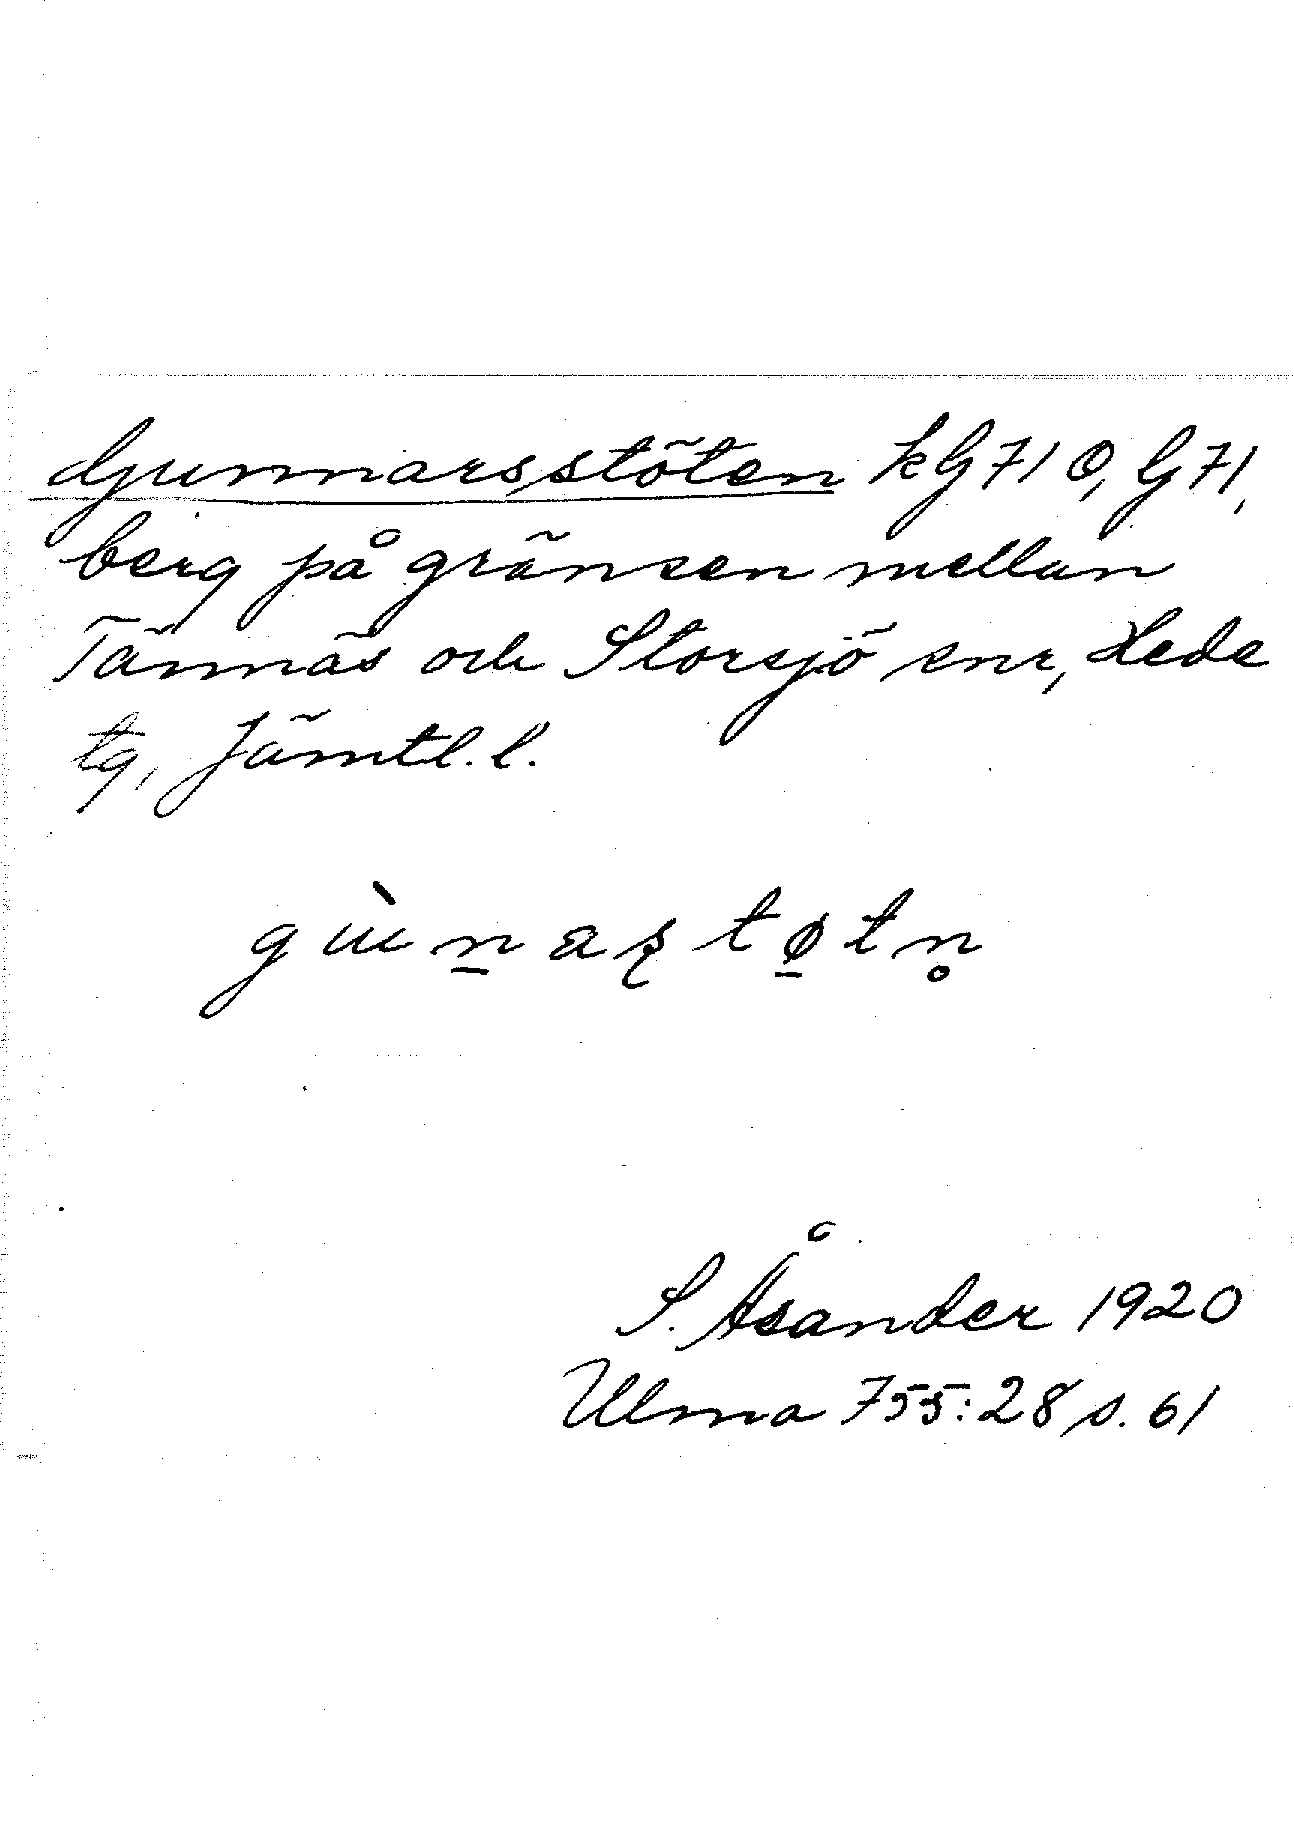 Gunnarsstöten kG 71 Ö, G 71,
berg på gränsen mellan
Tännäs och Storsjö snr, Hede
tg, Jämtl. l.
S. Åsander 1920
Ulma 755:28 s. 61